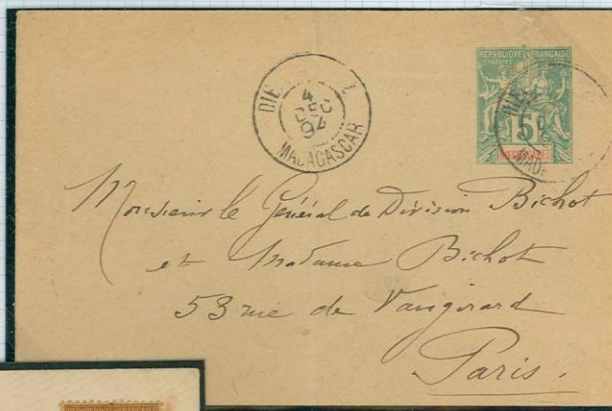 4
DEC
94
MADAGASCAR
REPUBLIQUE FRANÇAISE
5
Monsieur le Général de Division Bichot
et Madame Bichot
53 rue de Vaugirard
Paris.